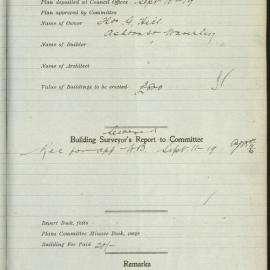 Plan deposited at Council Offices Sept 10-19
Plan approved by Committee
Name of Owner Geo. G. Hill
Ashton St
Name of Builder
Name of Architect
Value of Buildings to be erected.
Building Surveyor's Report to Committee
Rec for app Sept 11-19
Import Book, folio
Plans Committee Minute Book, page
Building Fee Paid 20/-
Remarks